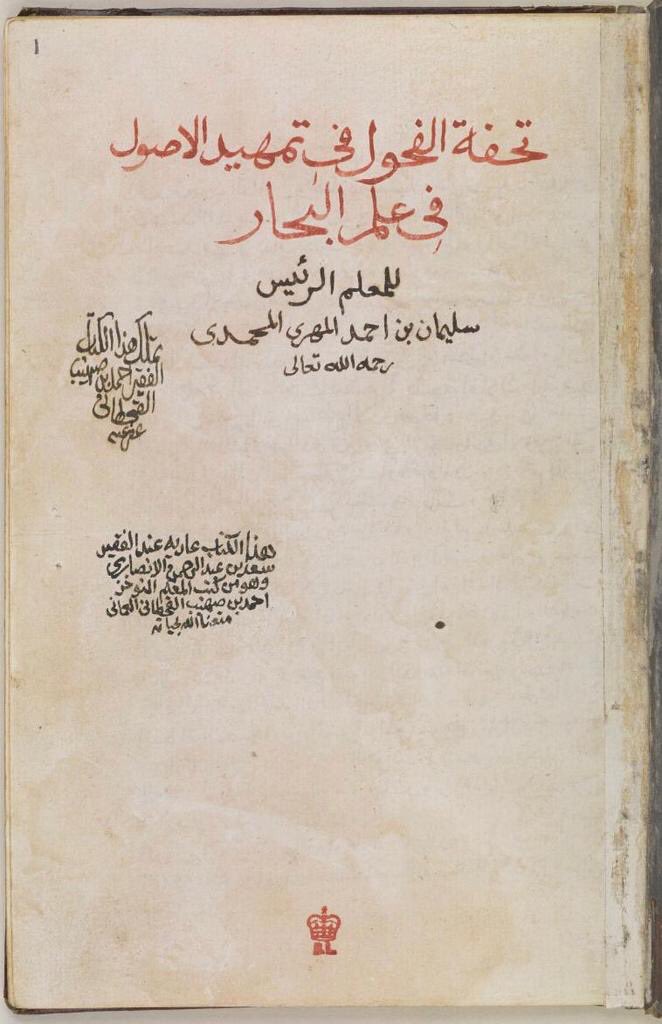 ١
تحفة الفحول في تمهيد الاصول
في علم البحار
للمعلم الرئيس
سليمان بن احمد المهري المحمدي
رحمه الله تعالى
تملك هذا الكتاب
الفقير احمد بن صهيب
القحطاني
عفي عنه
هذا الكتاب عاريه عند الفقير
سعد بن عبد الرحمن الانصاري
وهو من كتب المعلم النوخذ
احمد بن صهيب القحطاني العماني
متعنا الله بحياته
BL